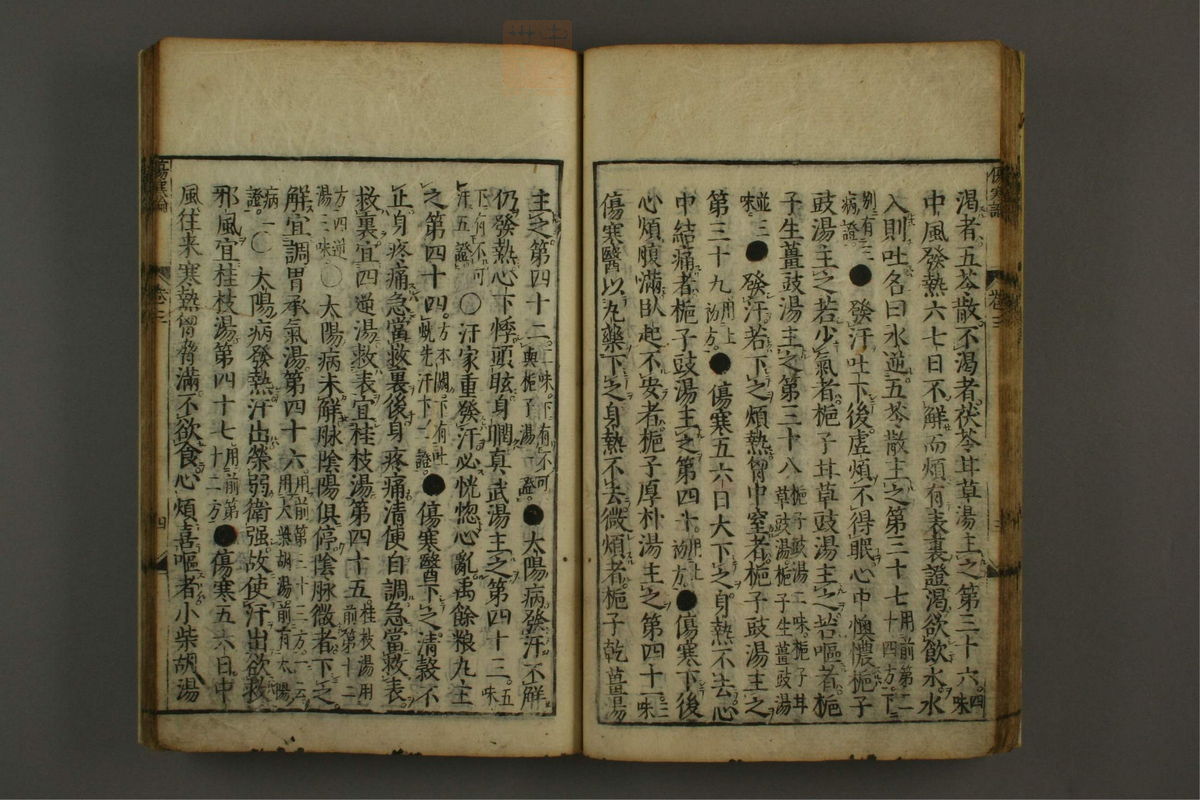 傷寒論
卷三
三
渴者五苓散不渴者茯苓甘草湯主之第三十六四味
中風發熱六七日不解而煩有表裏證渴欲飲水水
入則吐名曰水逆五苓散主之第三十七用前第二十四方下
別有三病證●發汗吐下後虛煩不得眠心中懊憹梔子
豉湯主之若少氣者梔子甘草豉湯主之若嘔者梔
子生薑豉湯主之第三十八梔子豉湯二味梔子甘草豉湯梔子生薑豉湯
並三味●發汗若下之煩熱胷中窒者梔子豉湯主之
第三十九用上初方●傷寒五六日大下之身熱不去心
中結痛者梔子豉湯主之第四十用上初方●傷寒下後
心煩腹滿臥起不安者梔子厚朴湯主之第四十一三味
傷寒醫以丸藥下之身熱不去微煩者梔子乾薑湯
主之第四十二二味下有不可與梔子湯一證●太陽病發汗不解
仍發熱心下悸頭眩身瞤真武湯主之第四十三五味
下有不可汗五證〇汗家重發汗必恍惚心亂禹餘粮丸主
之第四十四方本闕下有吐蚘先汗下二證●傷寒醫下之清穀不
止身疼痛急當救裏後身疼痛清便自調急當救表
救裏宜四逆湯救表宜桂枝湯第四十五桂枝湯用前第十二
方四逆湯三味〇太陽病未解脉陰陽俱停陰脉微者下之
解宜調胃承氣湯第四十六用前第三十三方一云用大柴胡湯前有太陽
病一證〇太陽病發熱汗出榮弱衛强故使汗出欲救
邪風宜桂枝湯第四十七用前第十二方●傷寒五六日中
風往来寒熱胷脅滿不欲食心煩喜嘔者小柴胡湯
傷寒論
四